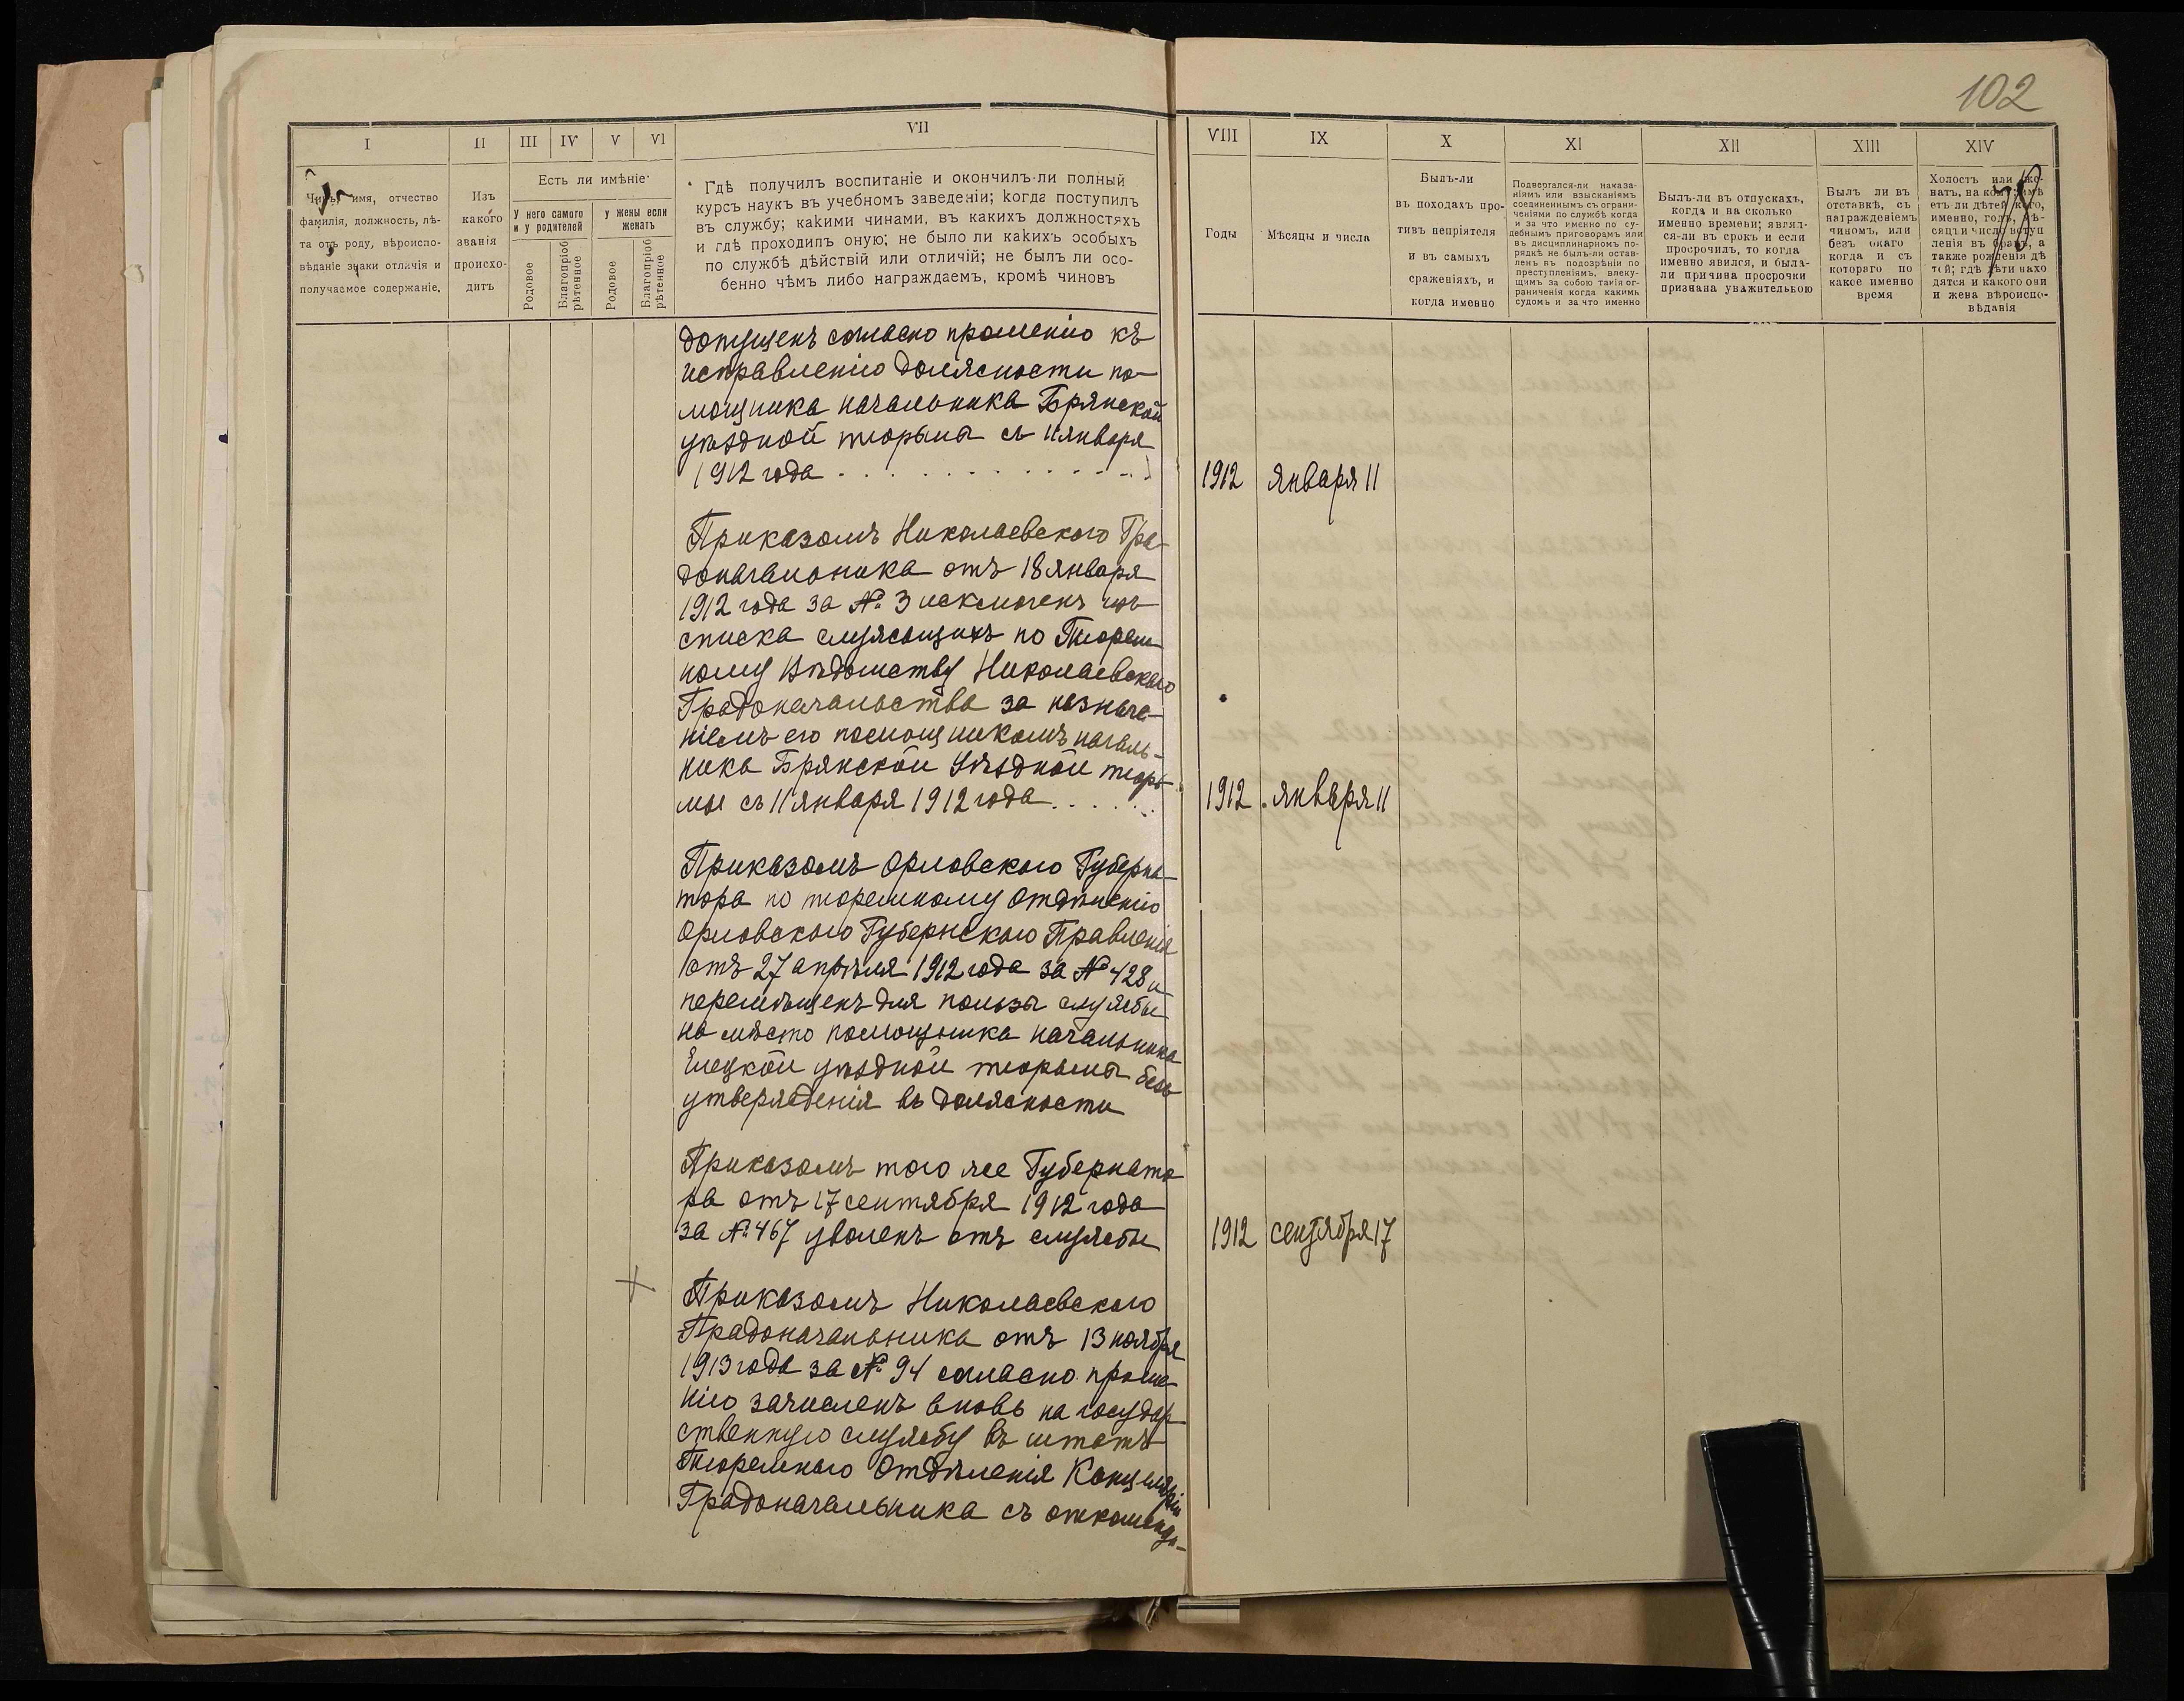 102
I
II
III
IV
V
VI
VII
VIII
IX
X
XI
XII
XIII
XIV
Чинъ, имя, отчество
фамилія, должность, лѣ-
та отъ роду, вѣроиспо-
вѣданіе знаки отличія и
получаемое содержаніе.
Изъ
какого
званія
происхо-
дитъ
Есть ли имѣніе
У него самого
и у родителей
у жены если
женатъ
Родовое
Благопріоб
рѣтенное
Родовое
Благопріоб
рѣтенное
Гдѣ получилъ воспитаніе и окончилъ-ли полный
курсъ наукъ въ учебномъ заведеніи; когда поступилъ
въ службу; какими чинами, въ какихъ должностяхъ
и гдѣ проходилъ оную; не было ли какихъ особыхъ
по службѣ дѣйствій или отличій; не былъ ли осо-
бенно чѣмъ либо награждаемъ, кромѣ чиновъ
Годы
Мѣсяцы и числа
Былъ-ли
въ походахъ про-
тивъ непріятеля
и въ самыхъ
сраженіяхъ, и
когда именно
Подвергался-ли наказа-
ніямъ или взысканіямъ
соединеннымъ съ ограни-
ченіями по службѣ когда
и за что именно по су-
дебнымъ приговорамъ или
въ дисциплинарномъ по-
рядкѣ не былъ-ли остав-
ленъ въ подозрѣніи по
преступленіямъ, влеку-
щимъ за собою такія ог-
раниченія когда какимъ
судомъ и за что именно
Былъ-ли въ отпускахъ,
когда и на сколько
именно времени; являл-
ся-ли въ срокъ и если
просрочилъ, то когда
именно явился, и была-
ли причина просрочки
признана уважительною
Былъ ли въ
отставкѣ, съ
награжденіемъ
чиномъ, или
безъ онаго
когда и съ
котораго по
какое именно
время
Холостъ или же-
натъ, на комъ; имѣ
етъ ли дѣтей кого,
именно, годъ, мѣ-
сяцъ и число вступ
ленія въ бракъ, а
также рожденія дѣ
тей; гдѣ дѣти нахо
дятся и какого они
и жена вѣроиспо-
вѣданія
допущенъ согласно прошенію къ
исправленію должности по-
мощника начальника Брянской
уѣздной тюрьмы съ 11 января
1912 года
1912 января 11
Приказомъ Николаевскаго Гра-
доначальника отъ 18 января
1912 года за № 3 исключенъ изъ
списка служащихъ по Тюрем-
ному Вѣдомству Николаевскаго
Градоначальства за назначе-
ніемъ его помощникомъ началь-
ника Брянской Уѣздной тюрь-
мы съ 11 января 1912 года
1912 января 11
Приказомъ Орловскаго Губерна-
тора по тюремному Отдѣленію
Орловскаго Губернскаго Правленія
отъ 27 апрѣля 1912 года за № 428
перемѣщенъ для пользы службы
на мѣсто помощника начальника
Елецкой уѣздной тюрьмы безъ
утвержденія въ должности
Приказомъ того же Губернато-
ра отъ 17 сентября 1912 года
за № 467 уволенъ отъ службы
1912 сентября 17
Приказомъ Николаевскаго
Градоначальника отъ 13 ноября
1913 года за № 94 согласно проше-
нію зачисленъ вновь на государ-
ственную службу въ штатъ
Тюремнаго Отдѣленія Канцеляріи
Градоначальника съ откоманди-